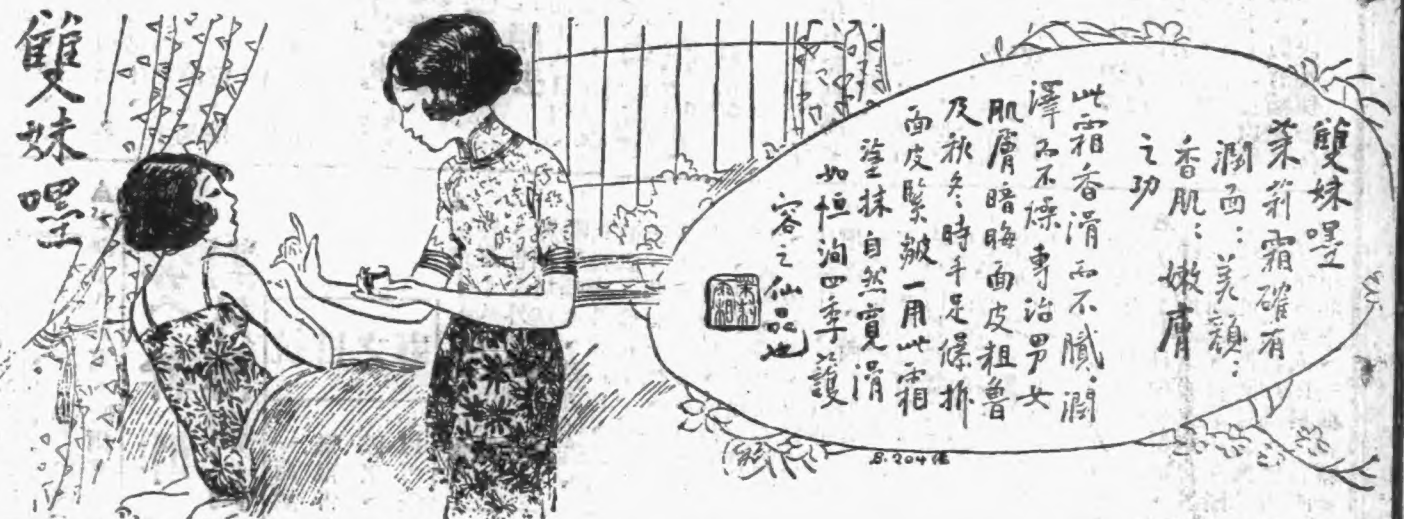 雙妹嘿
茉莉霜確有
潤面:美顏:
香肌:嫩膚
之功
此霜香滑而不膩潤
澤而不燥專治男女
肌膚暗晦面皮粗魯
及秋冬時手足爆拆
面皮緊皺一用此霜
塗抹自然覺滑
如恒洵四季護
容之仙品也
茉莉霜
B.204
雙妹嘿